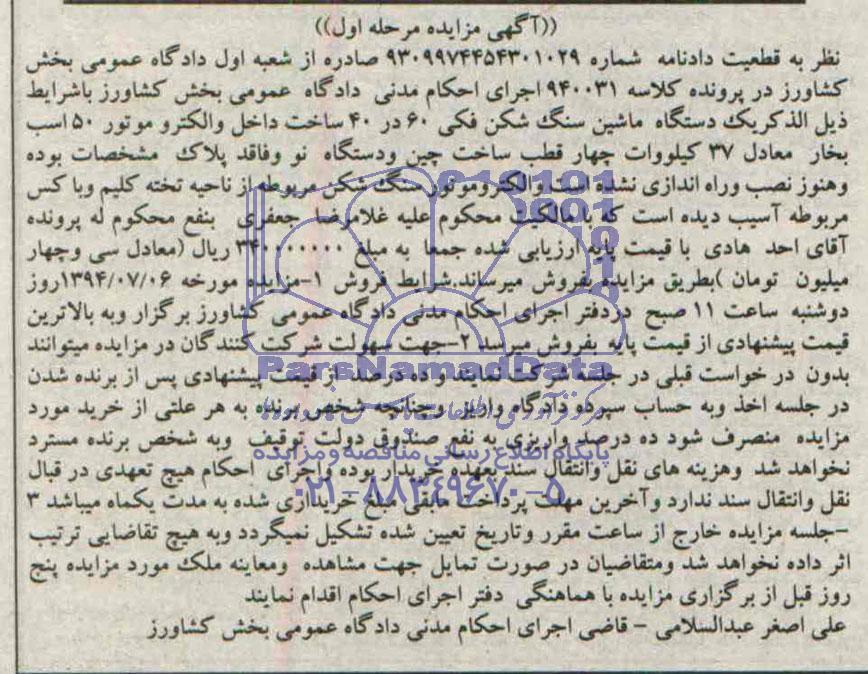 ((آگهی مزایده مرحله اول))
نظر به قطعیت دادنامه شماره ۹۳۰۹۹۷۴۴۵۴۳۰۱۰۲۹ صادره از شعبه اول دادگاه عمومی بخش
کشاورز در پرونده کلاسه ۹۴۰۰۳۱ اجرای احکام مدنی دادگاه عمومی بخش کشاورز باشرایط
ذیل الذکریک دستگاه ماشین سنگ شکن فکی ۶۰ در ۴۰ ساخت داخل والکترو موتور ۵۰ اسب
بخار معادل ۳۷ کیلووات چهار قطب ساخت چین ودستگاه نو وفاقد پلاک مشخصات بوده
وهنوز نصب وراه اندازی نشده است والکتروموتور سنگ شکن مربوطه از ناحیه تخته کلیم وبا کس
مربوطه آسیب دیده است که با مالکیت محکوم علیه غلامرضا جعفری بنفع محکوم له پرونده
آقای احد هادی با قیمت پایه ارزیابی شده جمعا به مبلغ ۳۴۰۰۰۰۰۰۰ ریال (معادل سی وچهار
میلیون تومان )بطریق مزایده بفروش میرساند.شرایط فروش ۱-مزایده مورخه ۱۳۹۴/۰۷/۰۶روز
دوشنبه ساعت ۱۱ صبح دردفتر اجرای احکام مدنی دادگاه عمومی کشاورز برگزار وبه بالاترین
قیمت پیشنهادی از قیمت پایه بفروش میرسد ۲-جهت سهولت شرکت کنندگان در مزایده میتوانند
بدون در خواست قبلی در جلسه شرکت نمایند و ده درصد از قیمت پیشنهادی پس از برنده شدن
در جلسه اخذ وبه حساب سپرده دادگاه واریز وچنانچه شخص برنده به هر علتی از خرید مورد
مزایده منصرف شود ده درصد واریزی به نفع صندوق دولت توقیف وبه شخص برنده مسترد
نخواهد شد وهزینه های نقل وانتقال سند بعهده خریدار بوده واجرای احکام هیچ تعهدی در قبال
نقل وانتقال سند ندارد وآخرین مهلت پرداخت مابقی مبلغ خریداری شده به مدت یکماه میباشد ۳
-جلسه مزایده خارج از ساعت مقرر وتاریخ تعیین شده تشکیل نمیگردد وبه هیچ تقاضایی ترتیب
اثر داده نخواهد شد ومتقاضیان در صورت تمایل جهت مشاهده ومعاینه ملک مورد مزایده پنج
روز قبل از برگزاری مزایده با هماهنگی دفتر اجرای احکام اقدام نمایند
علی اصغر عبدالسلامی - قاضی اجرای احکام مدنی دادگاه عمومی بخش کشاورز
ParsNamadData
پایگاه اطلاع رسانی مناقصه و مزایده
۰۲۱-۸۸۳۴۹۶۷۰-۵